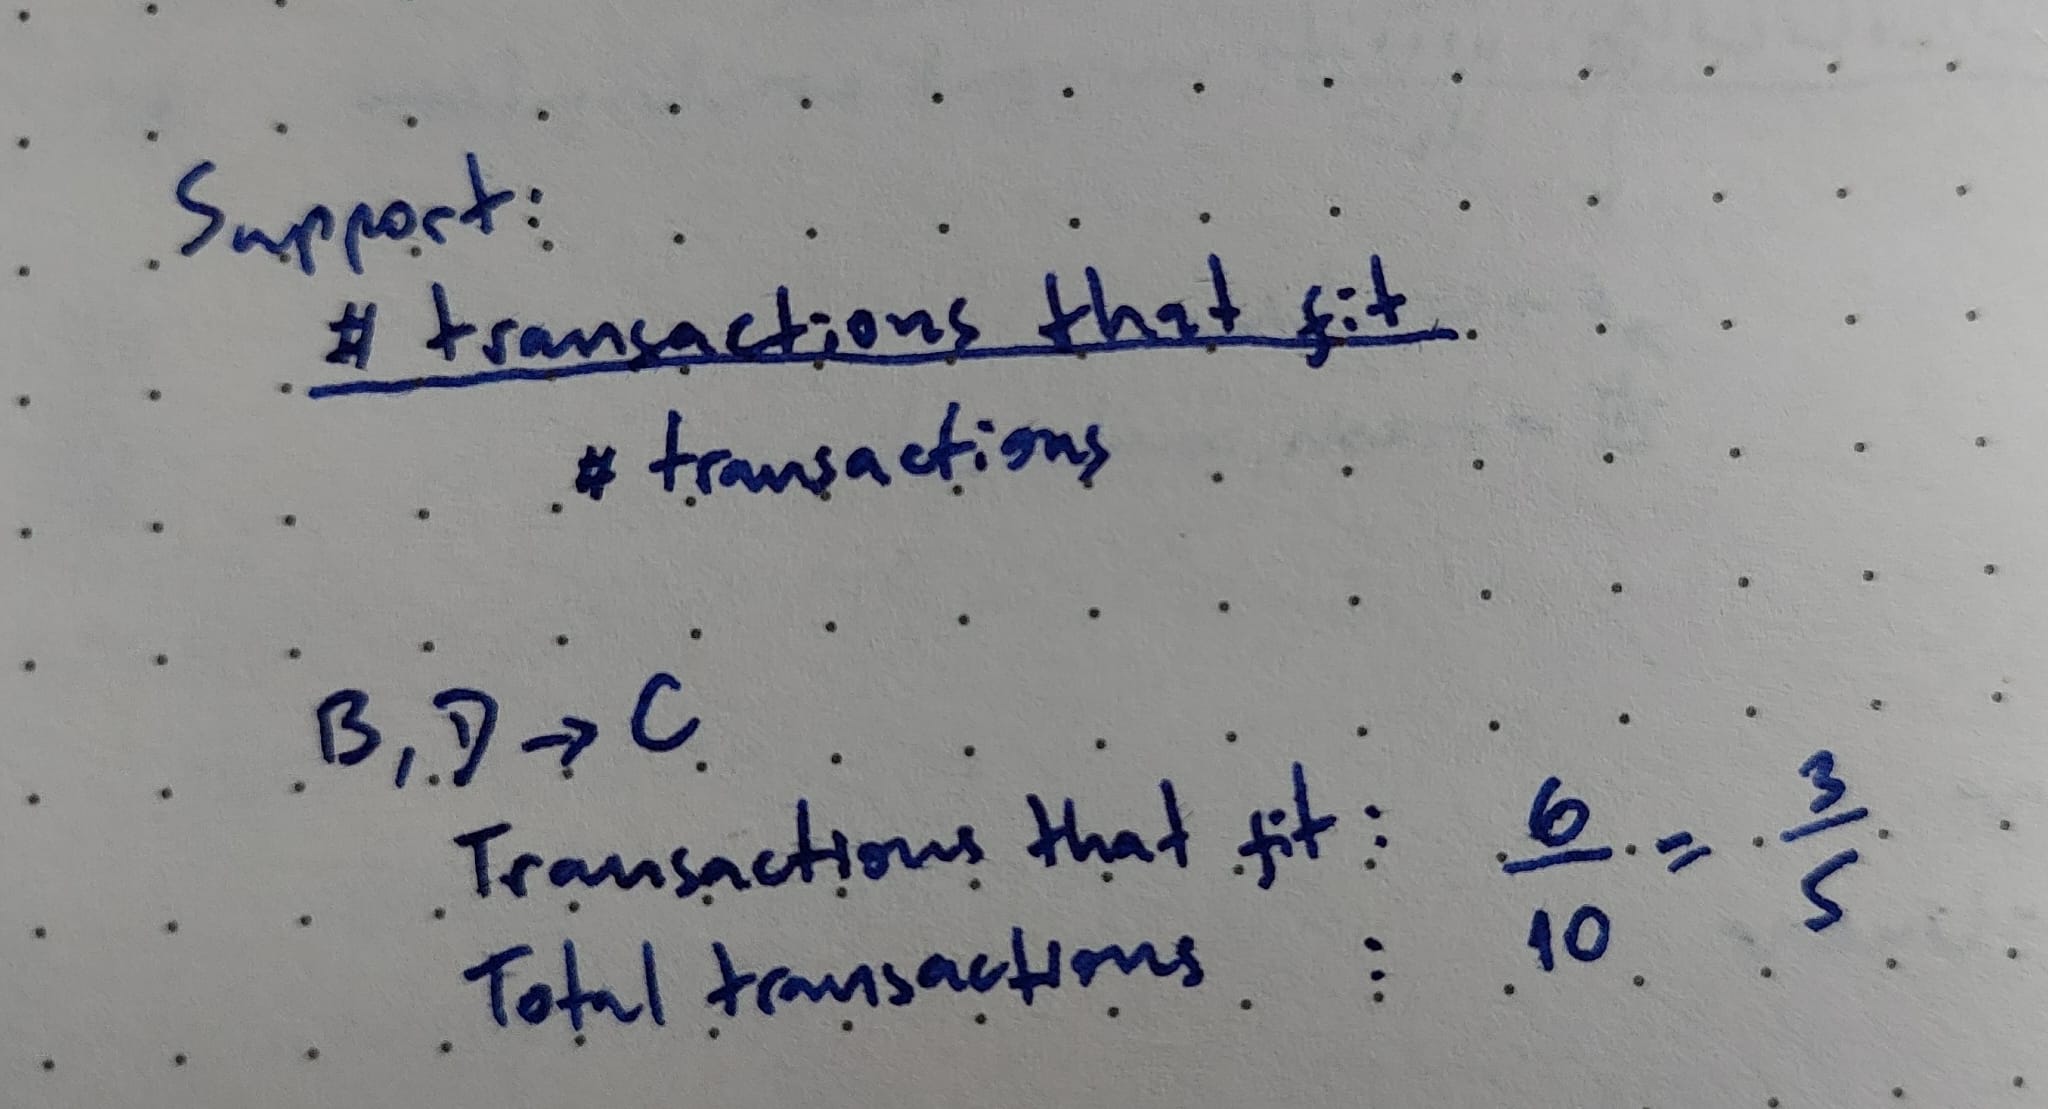 Support:
# transactions that fit
# transactions
B, D → C
Transactions that fit : 6/10 = 3/5
Total transactions :